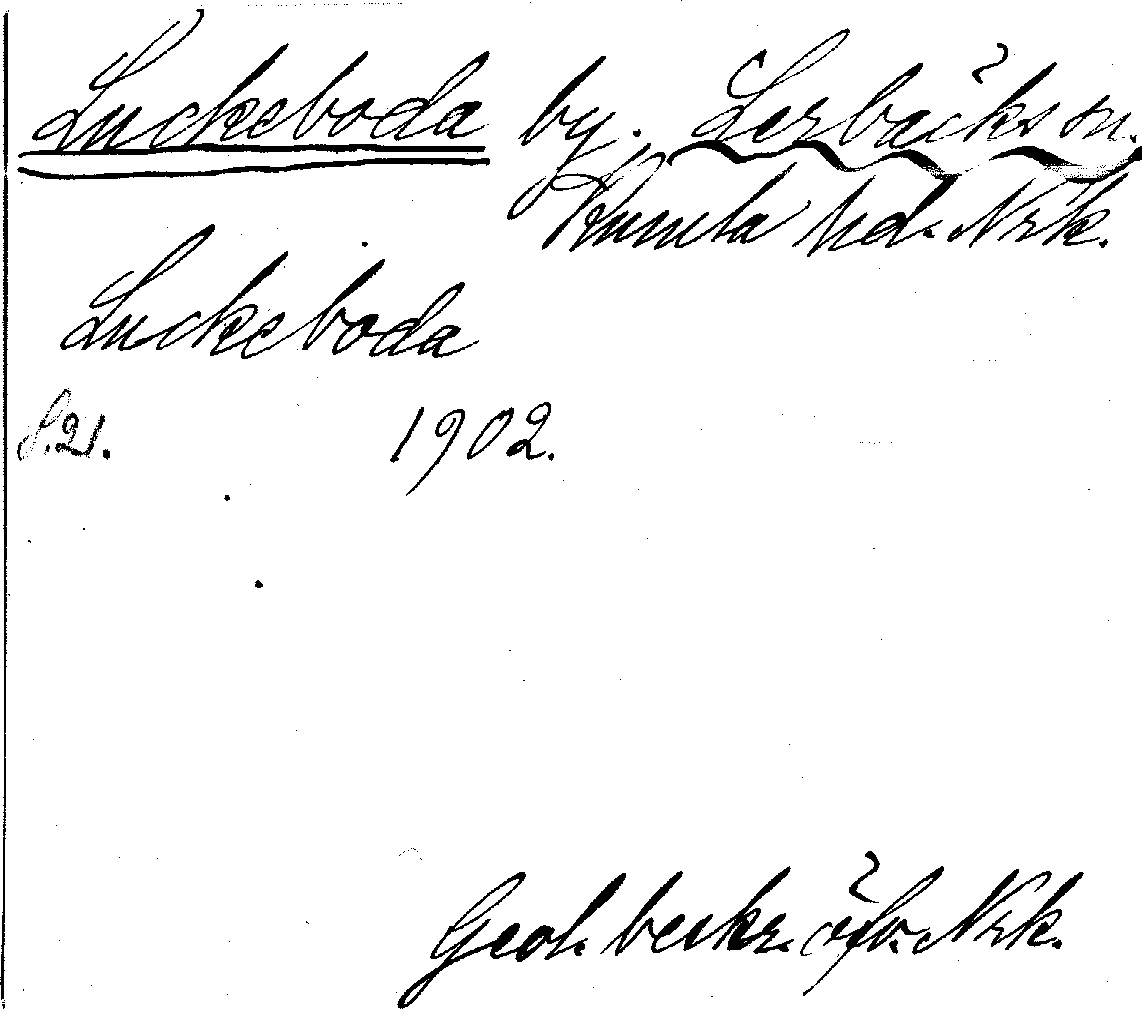 Luckeboda by. Lerbäcks sn.
Kumla hd. Nrk.
Luckeboda
S.21. 1902.
Geol. beskr. öfv. Nrk.